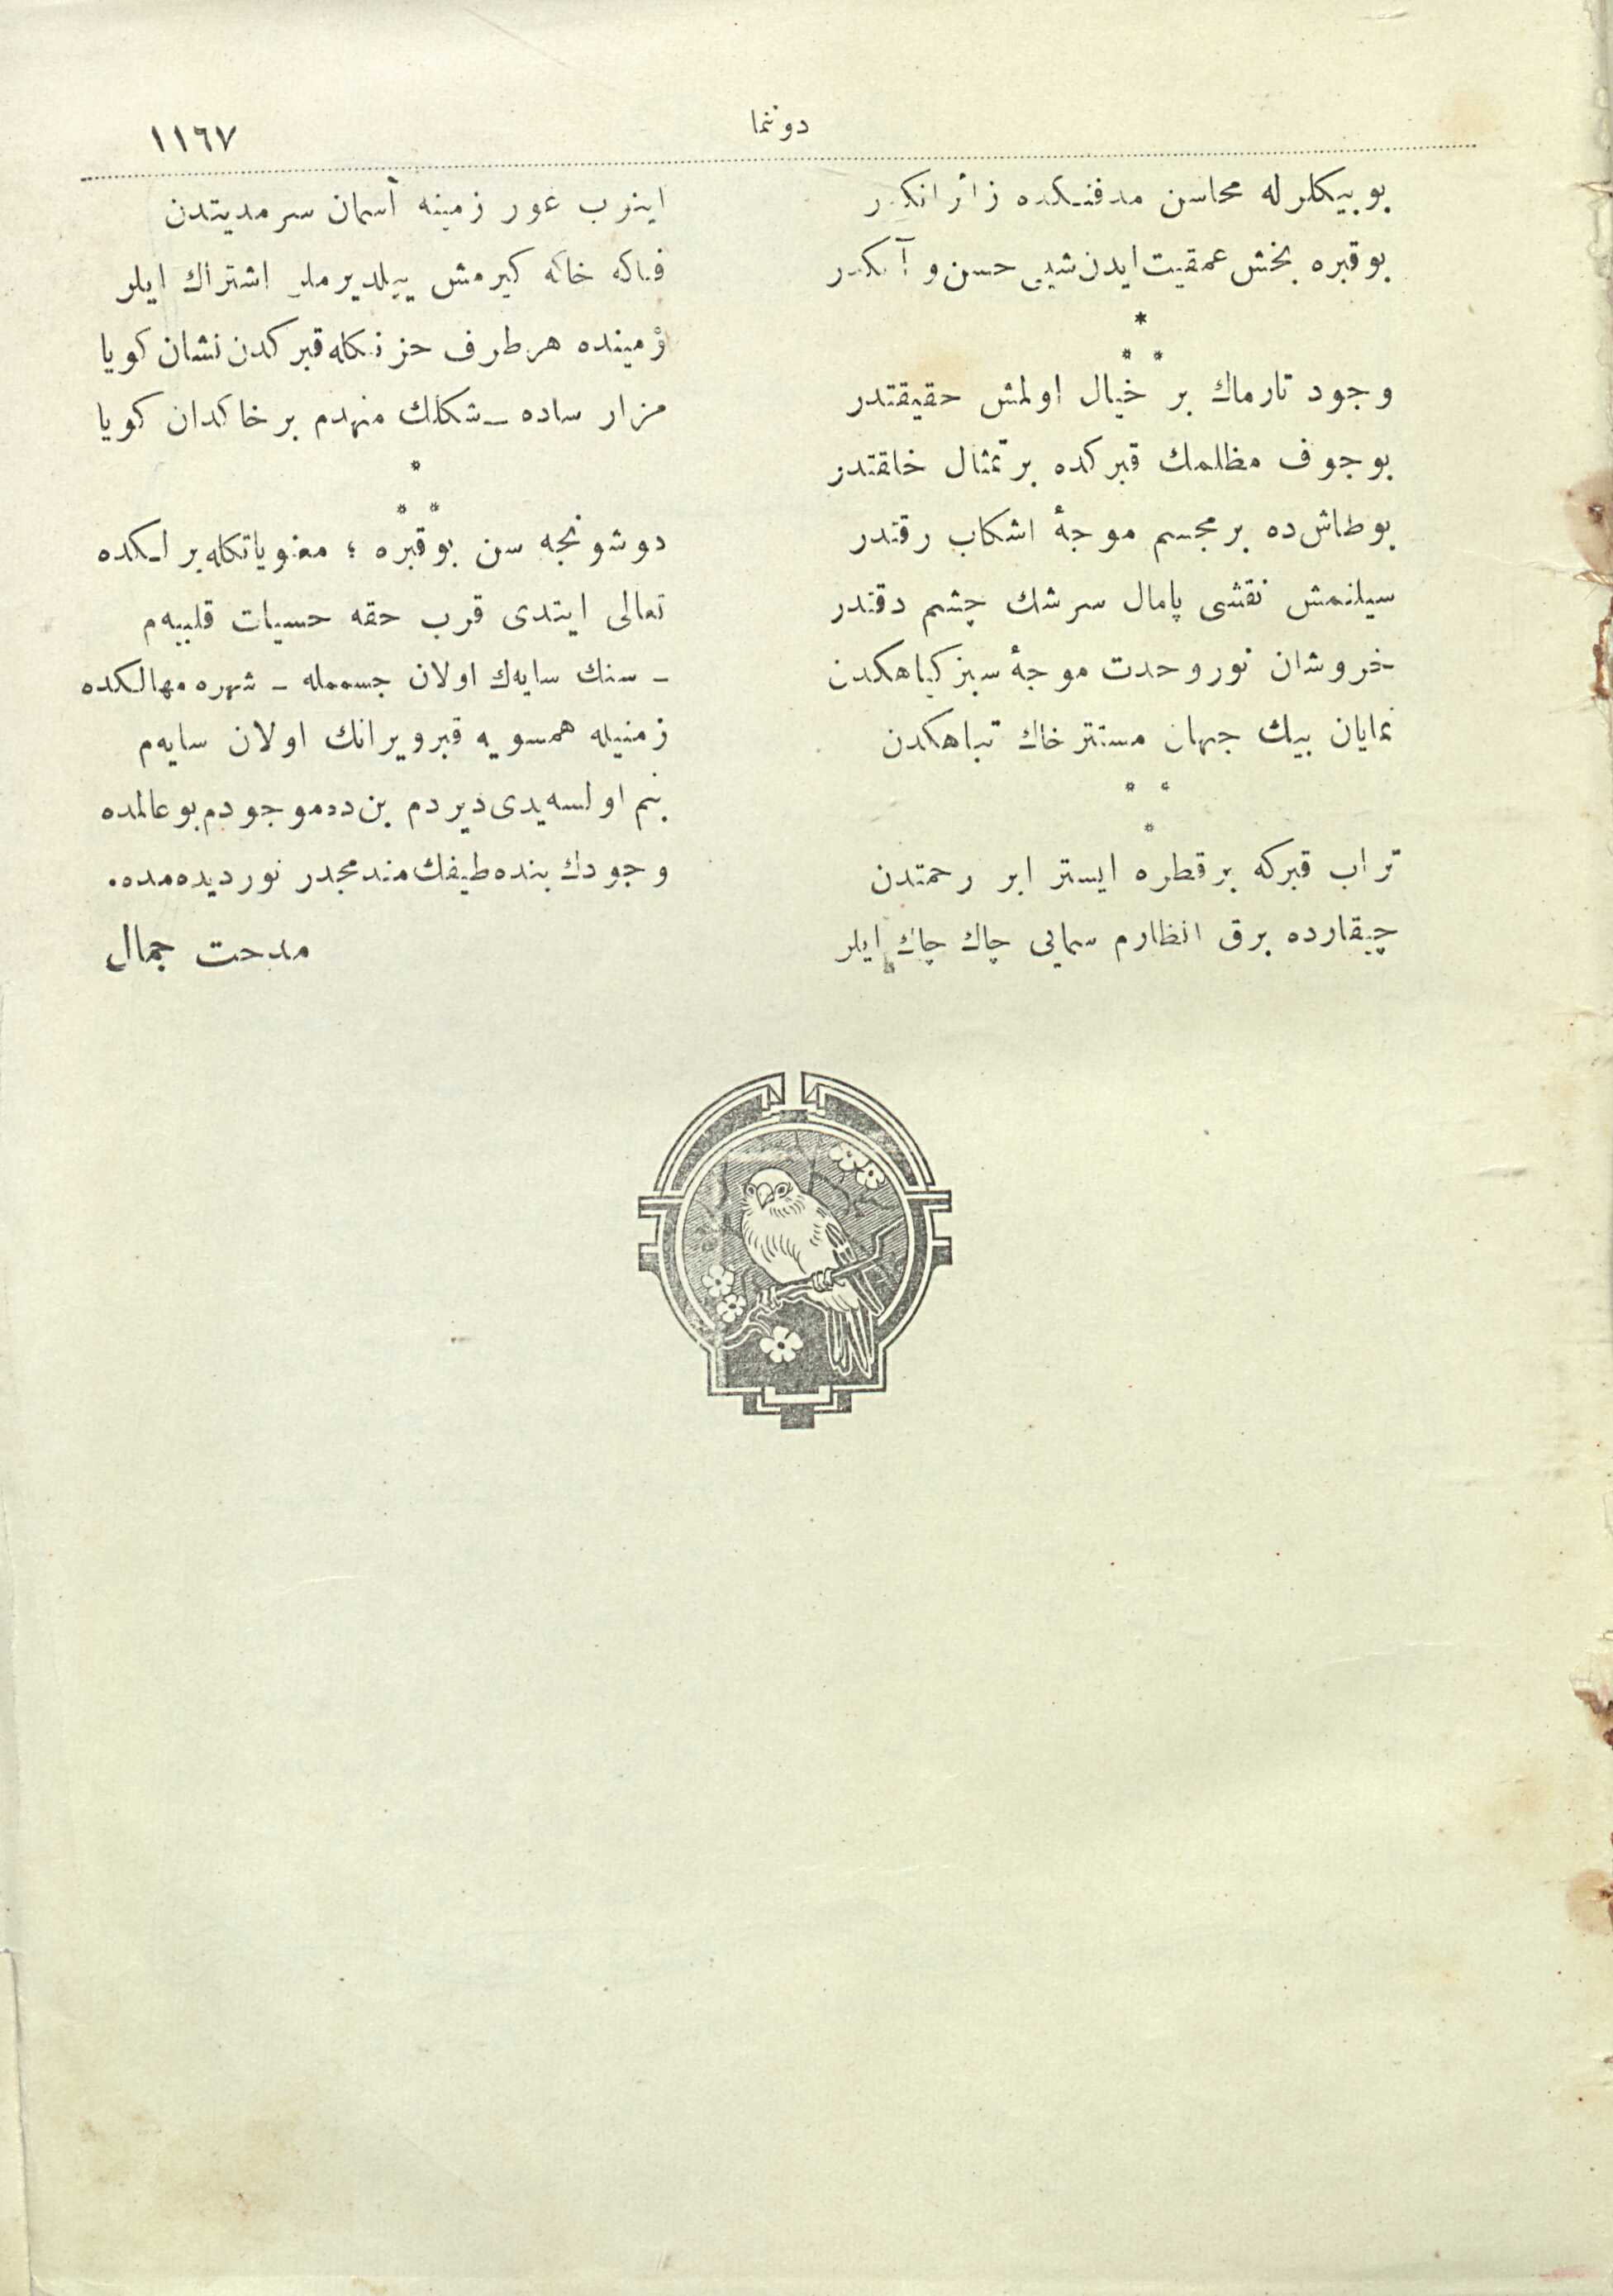 دوننما
١١٦٧
بو بیكلرله محاسن مدفنـكده زائرانكدر
بو قبره بخش عمقیت ایدن شیبی حسن و آنكدر
*
* *
وجود تارماك بر خیال اولمش حقیقتدر
بو جوف مظلمك قبركده بر تمثال خلقتدر
بو طاش ده بر مجسم موجهٔ اشكاب رقتدر
سیلنمش نقشی پامال سرشك چشم دقتدر
خروشان نور وحدت موجهٔ سبز كیاهكدن
نمایان بیك جهان مستتر خاك تباهكدن
* *
*
تراب قبركه بر قطره ایستر ابر رحمتدن
چیقارده برق انظارم سمایی چاك چاك ایلر
اینوب غور زمینه آسمان سرمدیتدن
خاكه كیرمش ییلدیرملر اشتراك ایلر
زمینده هر طرف حزنكله قبركدن نشان كویا
مزار ساده ـ شكلك منهدم بر خاكدان كویا
*
* *
دوشونجه سن بو قبره ؛ معنویاتكله برلـكده
تعالی ایتدی قرب حقه حسیات قلبیه‌م
ـ سنك سایه‌ك اولان جسممله ـ شهره مهالكده
زمنیله همسویه قبر ویرانك اولان سایه‌م
بنم اولسه‌یدی دیردم بن ده موجودم بو عالمده
وجودك بنده طیفك مندمجدر نور دیده‌مده.
مدحت جمال